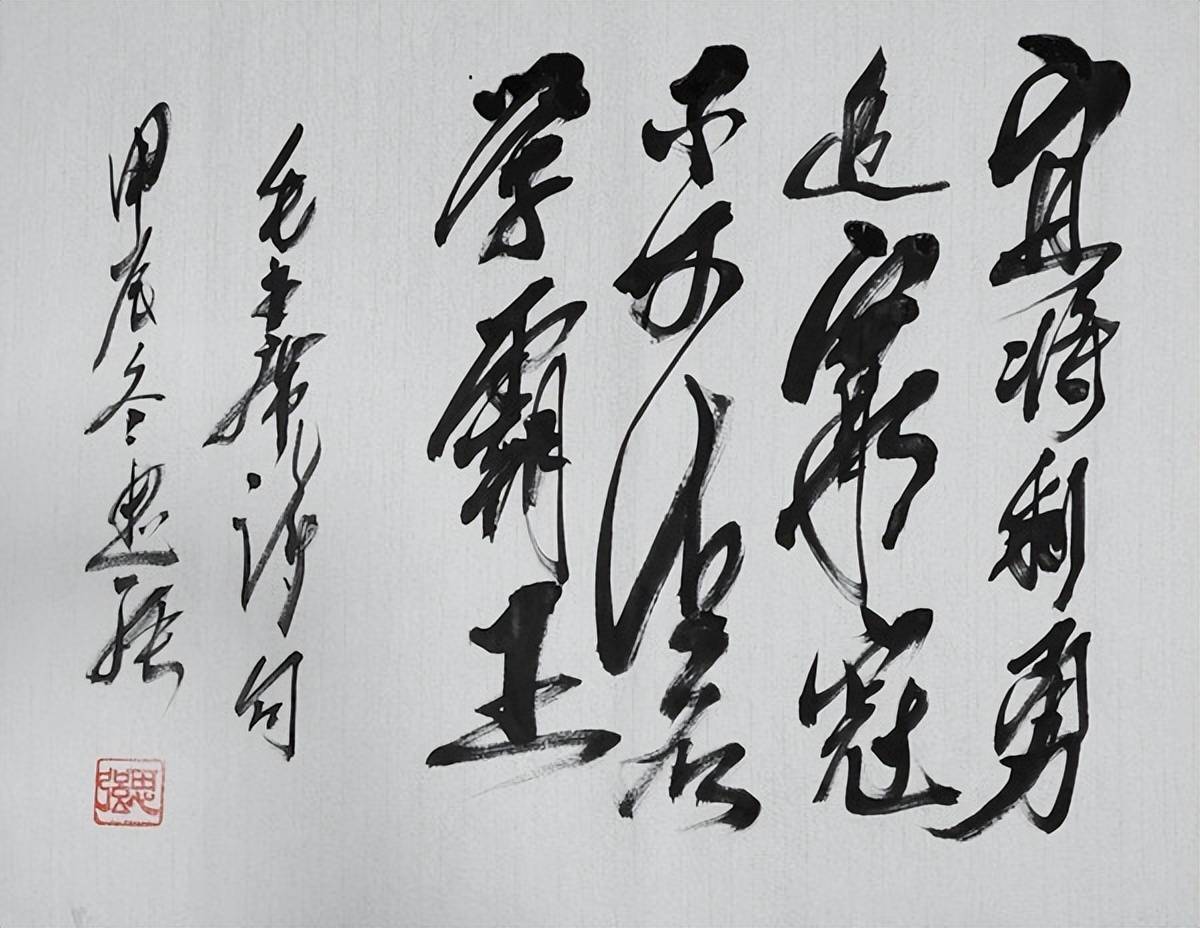 宜将剩勇
追窮寇
不可沽名
学霸王
毛主席诗句
甲辰冬思
思